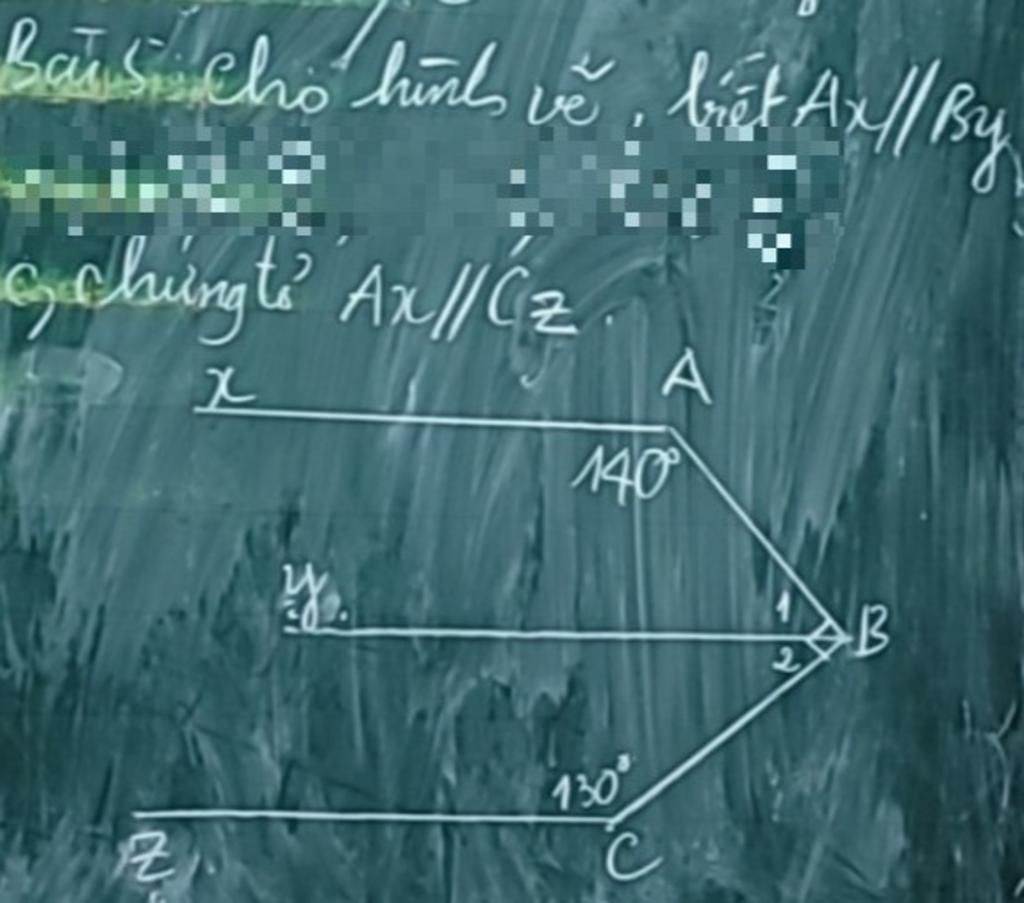 Bài 5: Cho hình vẽ, biết Ax//By,
c, chứng tỏ Ax//Cz.
x
A
140°
y
1
B
2
130°
z
C